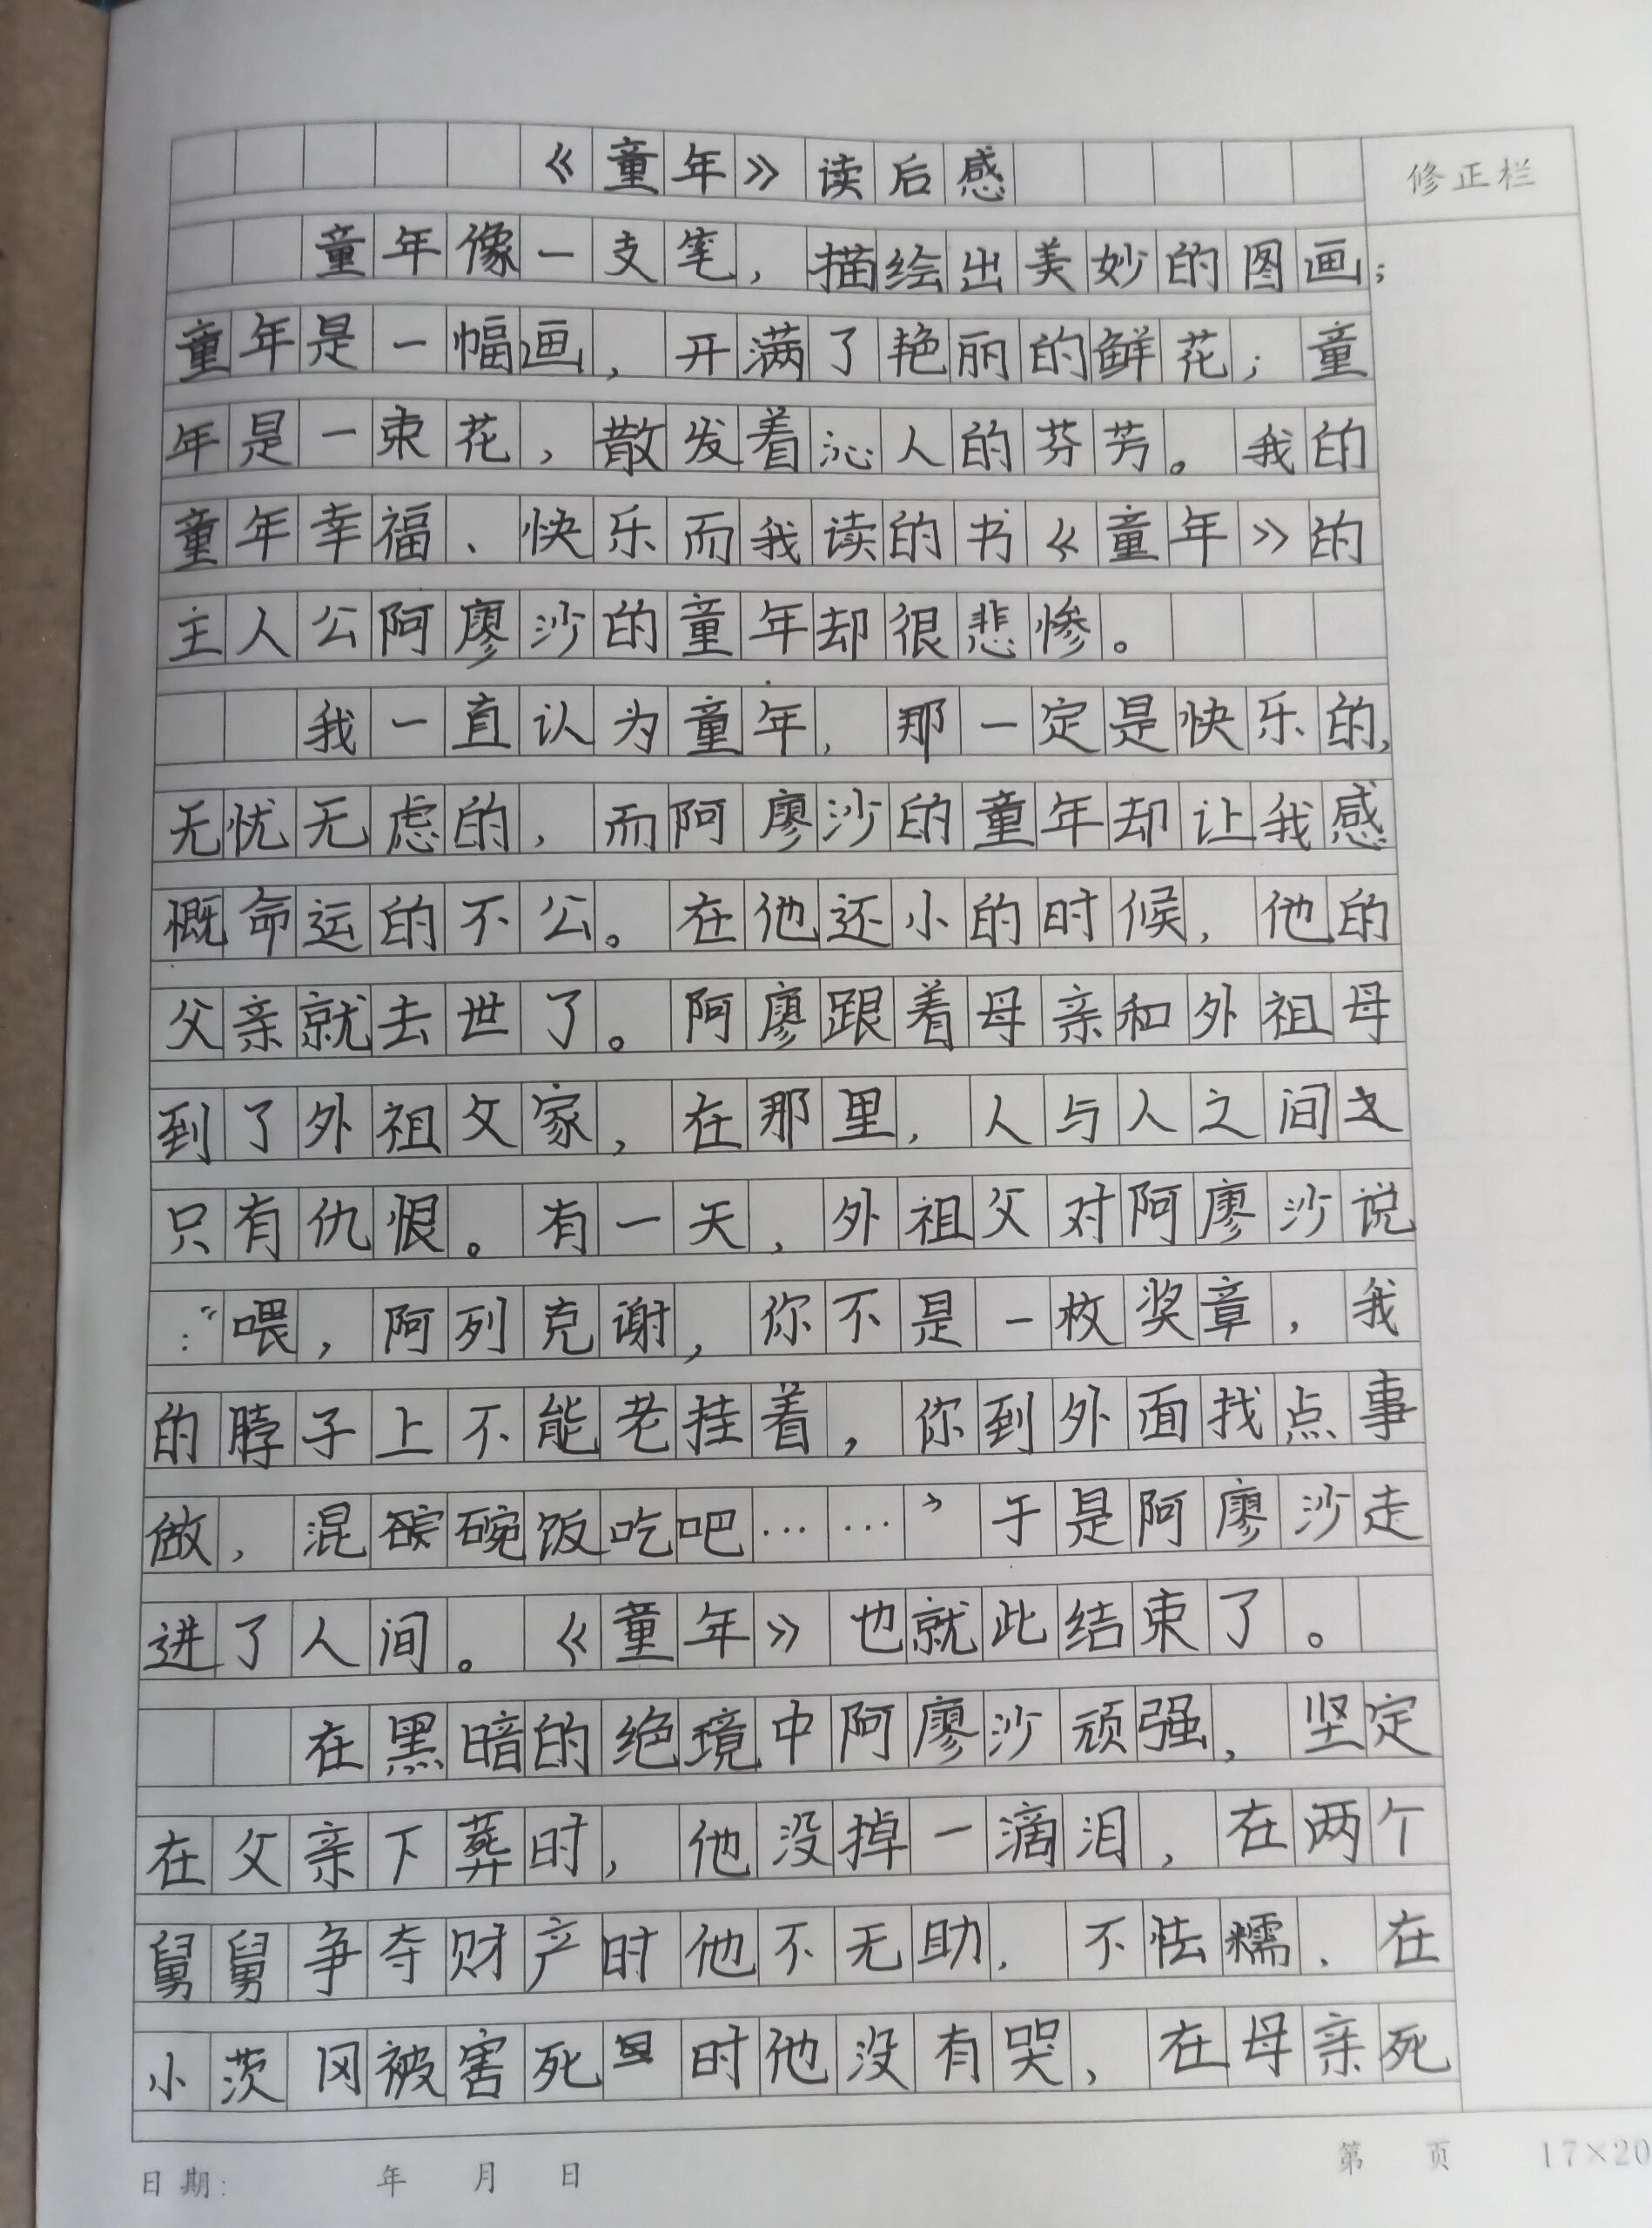 《童年》读后感
修正栏
童年像一支笔，描绘出美妙的图画；
童年是一幅画，开满了艳丽的鲜花；童
年是一束花，散发着沁人的芬芳。我的
童年幸福、快乐而我读的书《童年》的
主人公阿廖沙的童年却很悲惨。
我一直认为童年，那一定是快乐的，
无忧无虑的，而阿廖沙的童年却让我感
慨命运的不公。在他还小的时候，他的
父亲就去世了。阿廖跟着母亲和外祖母
到了外祖父家，在那里，人与人之间
只有仇恨。有一天，外祖父对阿廖沙说
：“喂，阿列克谢，你不是一枚奖章，我
的脖子上不能老挂着，你到外面找点事
做，混碗饭吃吧……”于是阿廖沙走
进了人间。《童年》也就此结束了。
在黑暗的绝境中阿廖沙顽强，坚定
在父亲下葬时，他没掉一滴泪，在两个
舅舅争夺财产时他不无助，不怯糯，在
小茨冈被害死时他没有哭，在母亲死
日期： 年 月 日
第 页 17×20